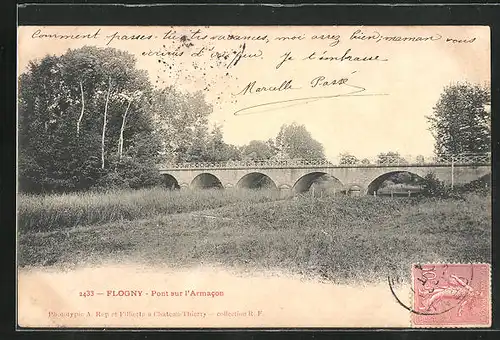 Comment passes-tu tes vacances, moi assez bien; maman vous
écrira d'ici peu. Je t'embrasse
Marcelle Passé
2433 - FLOGNY - Pont sur l'Armaçon
Phototypie A. Rep et Filliette à Chateau-Thierry - collection R. F.